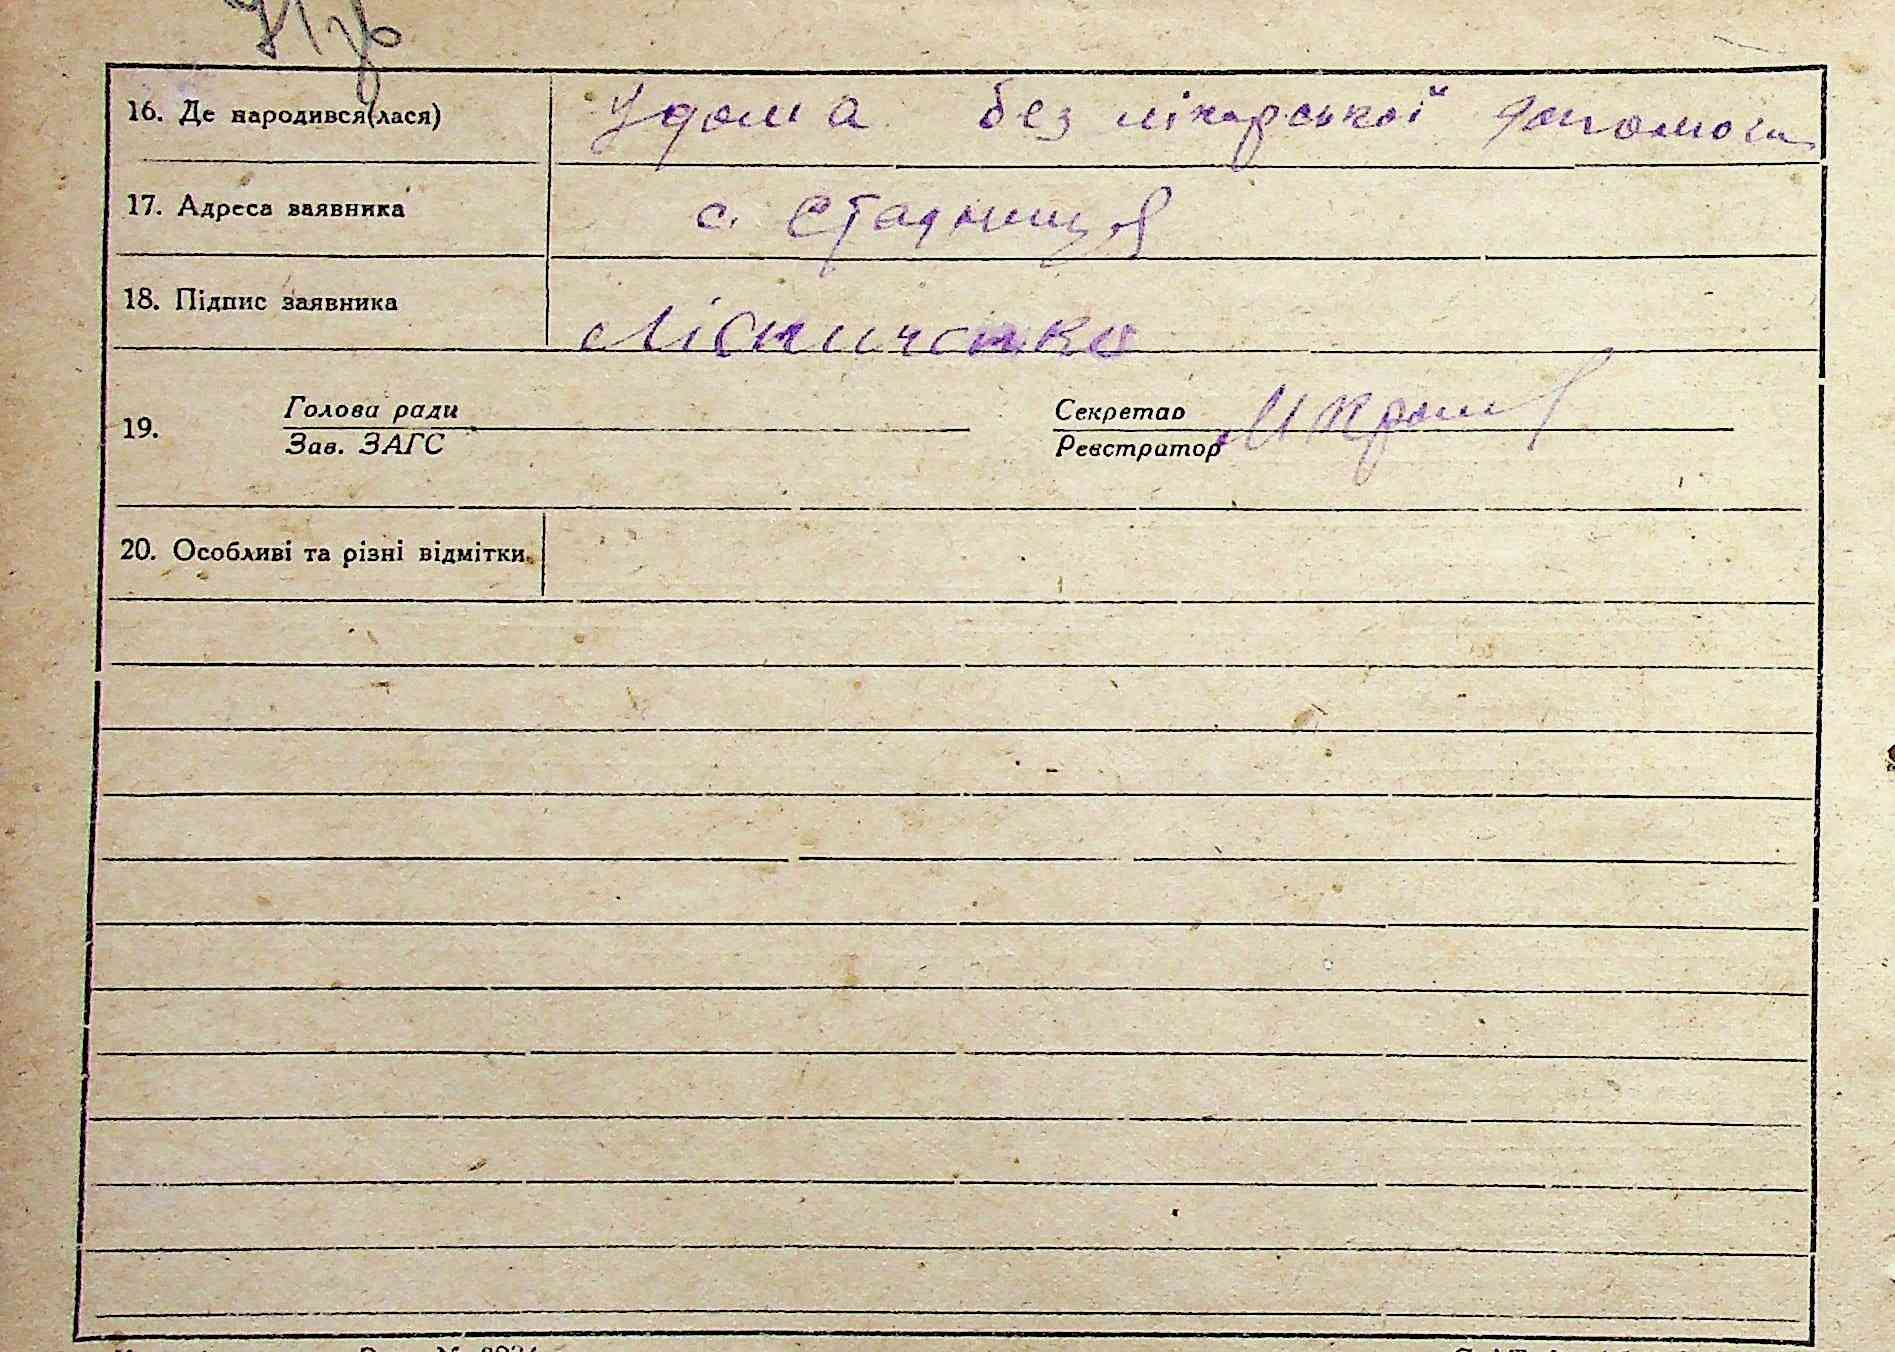 16. Де народився(лася) Удома без лікарської допомоги
17. Адреса заявника с. Стадниця
18. Підпис заявника Лісниченко
Голова ради Секретар
19.
Зав. ЗАГС Реєстратор
20. Особливі та різні відмітки